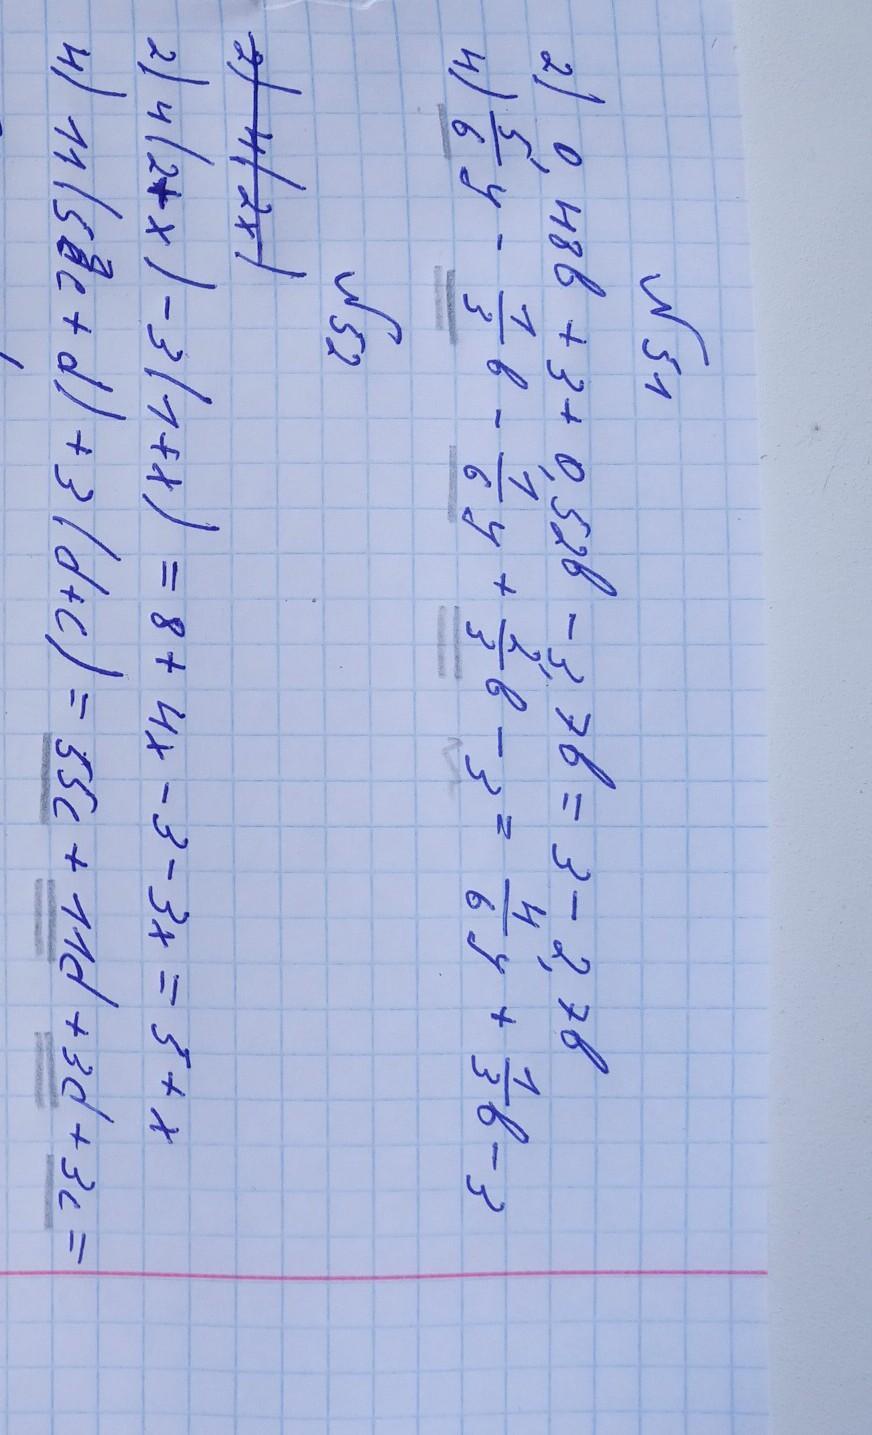 № 51
2) 0,48b + 3 + 0,52b - 3,7b = 3 - 2,7b
4) 5/6 y - 1/3 b - 1/6 y + 2/3 b - 3 = 4/6 y + 1/3 b - 3
№ 52
2) 4(2x)
2) 4(2+x) - 3(1+x) = 8 + 4x - 3 - 3x = 5 + x
4) 11(5c + d) + 3(d+c) = 55c + 11d + 3d + 3c =